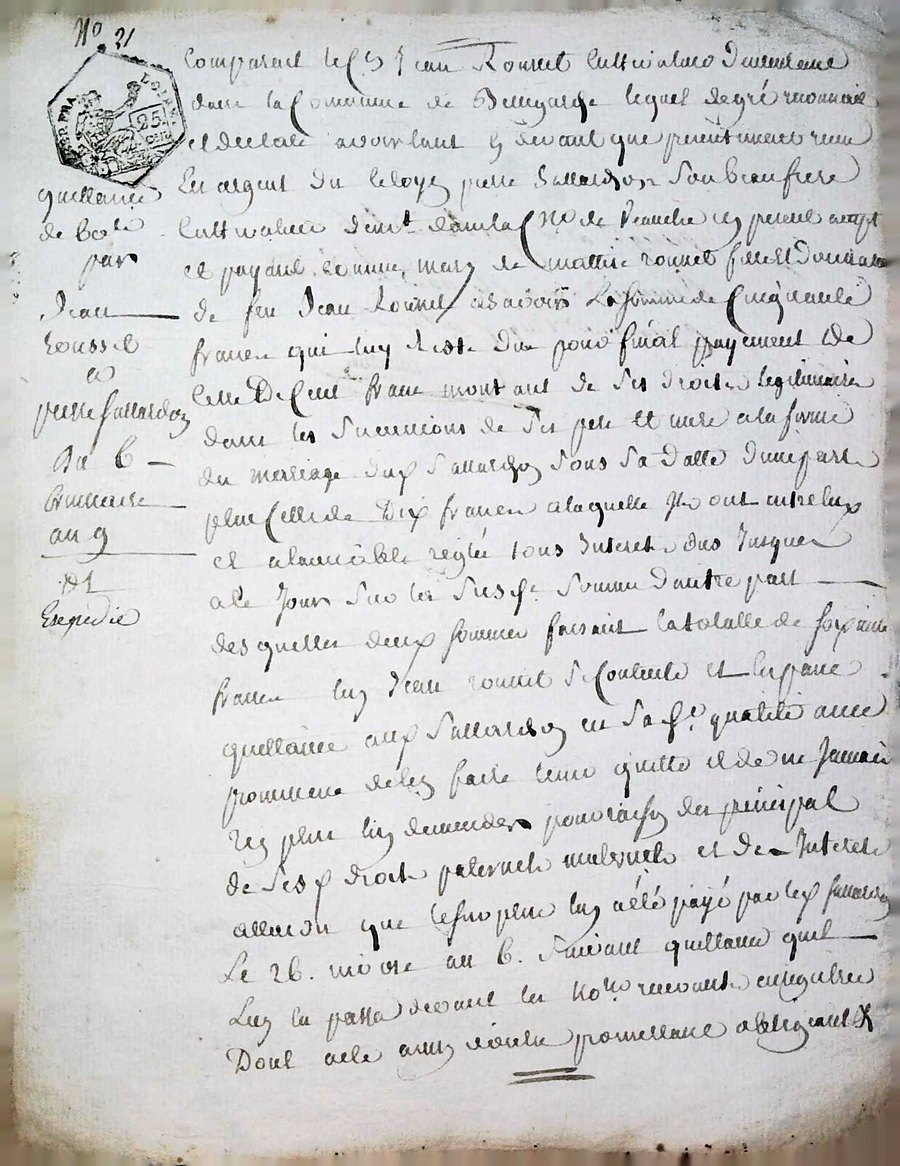 No 21
25
quittance
de 60 lt
par
Jean
roussel
a
pierre sallardon
Du 6
brumaire
an 9
Expedié
Comparait le Cn Jean Rousset Cultivateur demeurant
dans la Commune de Bellegarde lequel de gré reconnait
et declare avoir tant cy devant que presentement receu
En argent du Citoyen pierre Sallardon Son beau frere
Cultivateur demt dans la Cne de Veauche icy present accept
et payant comme mary de rousset fille et
de feu Jean Rousset asavoir La somme de Cinquante
francs qui luy reste due pour final payement de
Celle De Cent francs montant de Ses droits legitimaires
dans les Successions de Ses pere et mere a la forme
du mariage dud Sallardon Sous Sa datte d'une part
plus Celle de Dix francs a laquelle ils ont entre eux
et alamiable reglés tous Interets dus Jusques
a ce Jour Sur les Susd Sommes d'autre part
des quelles deux sommes faisant la totalle de soixante
francs luy Jean rousset se Contente et en passe
quittance aud Sallardon en Sad qualité avec
promesse de len faire tenir quitte et de ne Jamais
rien plus luy demander pour raison des principal
de Sesd droits paternels maternels et des Interets
attendu que le surplus luy a été payé par led sallardon
Le 26 nivose an 6 Suivant quittance quil
Luy en passa devant les Nores recevants enregistrée
Dont acte ainsi voulu promettant obligeant &